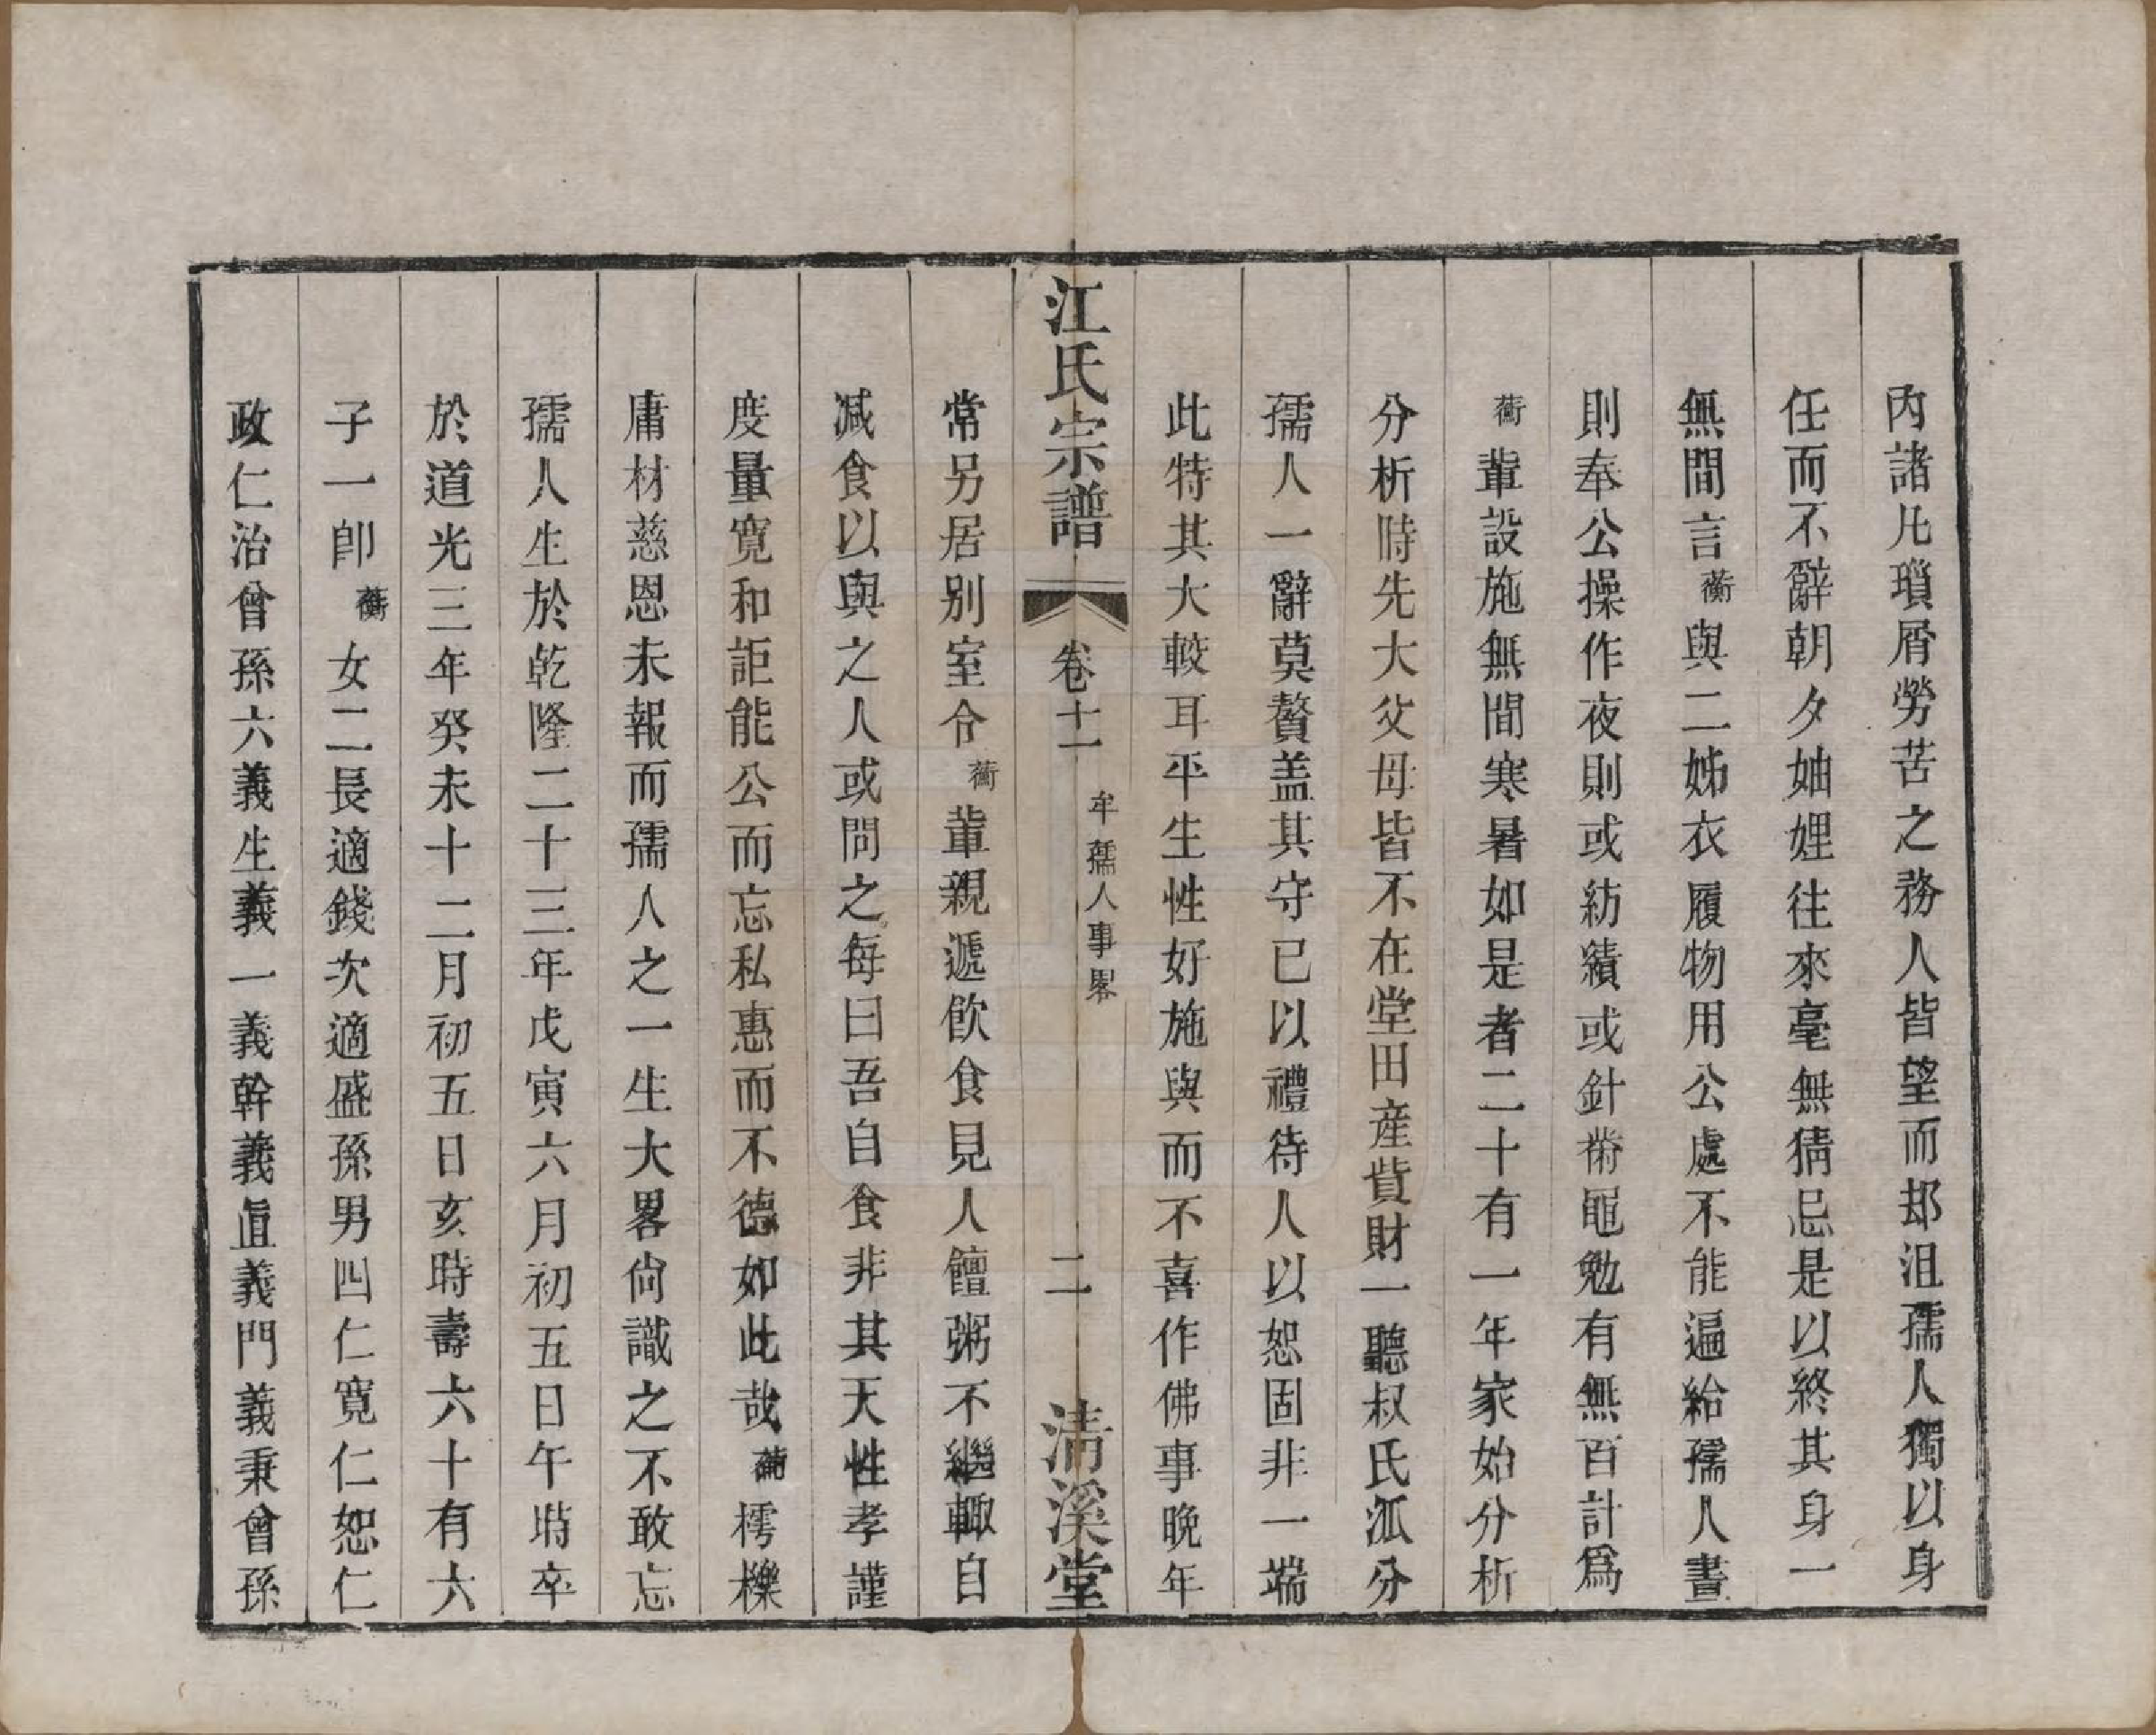 內諸凡瑣屑勞苦之務人皆望而却沮孺人獨以身
任而不辭朝夕妯娌往來毫無猜忌是以終其身一
無間言蘅與二姊衣履物用公處不能遍給孺人晝
則奉公操作夜則或紡績或針黹黽勉有無百計爲
蘅輩設施無間寒暑如是者二十有一年家始分析
分析時先大父母皆不在堂田産貲財一聽叔氏派分
孺人一辭莫贅盖其守已以禮待人以恕固非一端
此特其大較耳平生性好施與而不喜作佛事晚年
江氏宗譜 卷十一 牟孺人事畧 二 淸溪堂
常另居別室令蘅輩親遞飲食見人饘粥不繼輙自
减食以與之人或問之每曰吾自食非其天性孝謹
度量寬和詎能公而忘私惠而不德如此哉蘅樗櫟
庸材慈恩未報而孺人之一生大畧尙識之不敢忘
孺人生於乾隆二十三年戊寅六月初五日午時卒
於道光三年癸未十二月初五日亥時壽六十有六
子一卽蘅女二長適錢次適盛孫男四仁寬仁恕仁
政仁治曾孫六義生義一義幹義直義門義秉曾孫